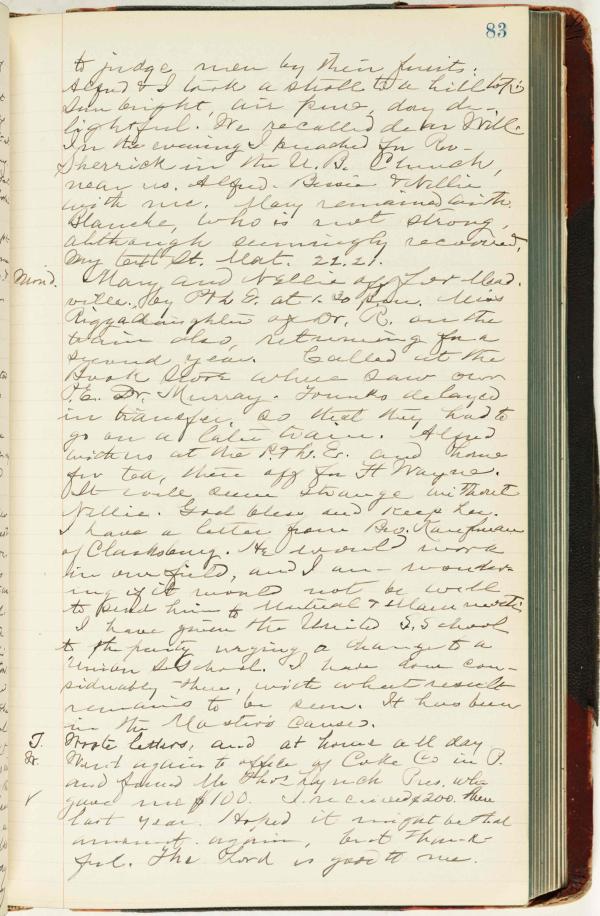 83
to judge men by their fruits.
Alfred & I took a stroll to a hill top.
Sun bright, air pure, day de-
lightful. We recalled dear Will.
In the evening I preached for Rev
Sherrick in the U. B. Church,
near us. Alfred. Bessie & Nellie
with me. Mary remained with
Blanche, who is not strong,
although seemingly recovered.
My text St. Mat. 22.21.
Mond. Mary and Nellie off for Mead-
ville, by P & L E. at 1.30 p.m. Miss
daughter of Dr. R. on the
train also, returning for a
second year. Called at the
Book Store where saw our
P. E. Dr. Murray. Trunks delayed
in transfer, so that they had to
go on a later train. Alfred
with us at the P. & L. E. and home
for tea, then off for Ft Wayne.
It will seem strange without
Nellie. God bless and keep her.
I have a letter from Bro. Kaufman
of Clarksburg. He would work
in our field, and I am wonder-
ing if it would not be well
to send him to Mutual &
I have given the United S. School
to the party urging a change to a
Union S School. I have done con-
siderably there, with what result
remains to be seen. It has been
in the Master's cause.
T. Wrote letters, and at home all day
W. Went again to office of Coke Co in P.
and found Mr Thos Lynch Pres. who
✓ gave me $100. I received $200 there
last year. Hoped it might be that
amount again, but thank-
ful. The Lord is good to me.